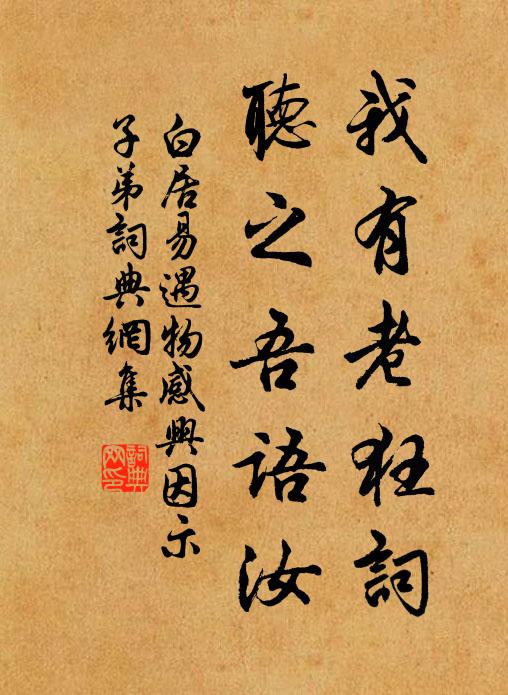 我有老狂詞
聽之吾語汝
白居易遇物感興因示
子弟詞典網集
詞典
网印